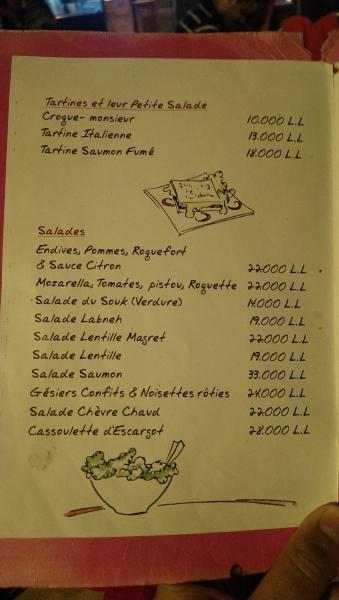 Tartines et leur Petite Salade
Croque-monsieur 10.000 L.L
Tartine Italienne 13.000 L.L
Tartine Saumon Fumé 18.000 L.L
Salades
Endives, Pommes, Roquefort
& Sauce Citron 22.000 L.L
Mozarella, Tomates, pistou, Roquette 22.000 L.L
Salade du Souk (Verdure) 14.000 L.L
Salade Labneh 19.000 L.L
Salade Lentille Magret 22.000 L.L
Salade Lentille 19.000 L.L
Salade Saumon 33.000 L.L
Gésiers Confits & Noisettes rôties 24.000 L.L
Salade Chèvre Chaud 22.000 L.L
Cassoulette d'Escargot 28.000 L.L